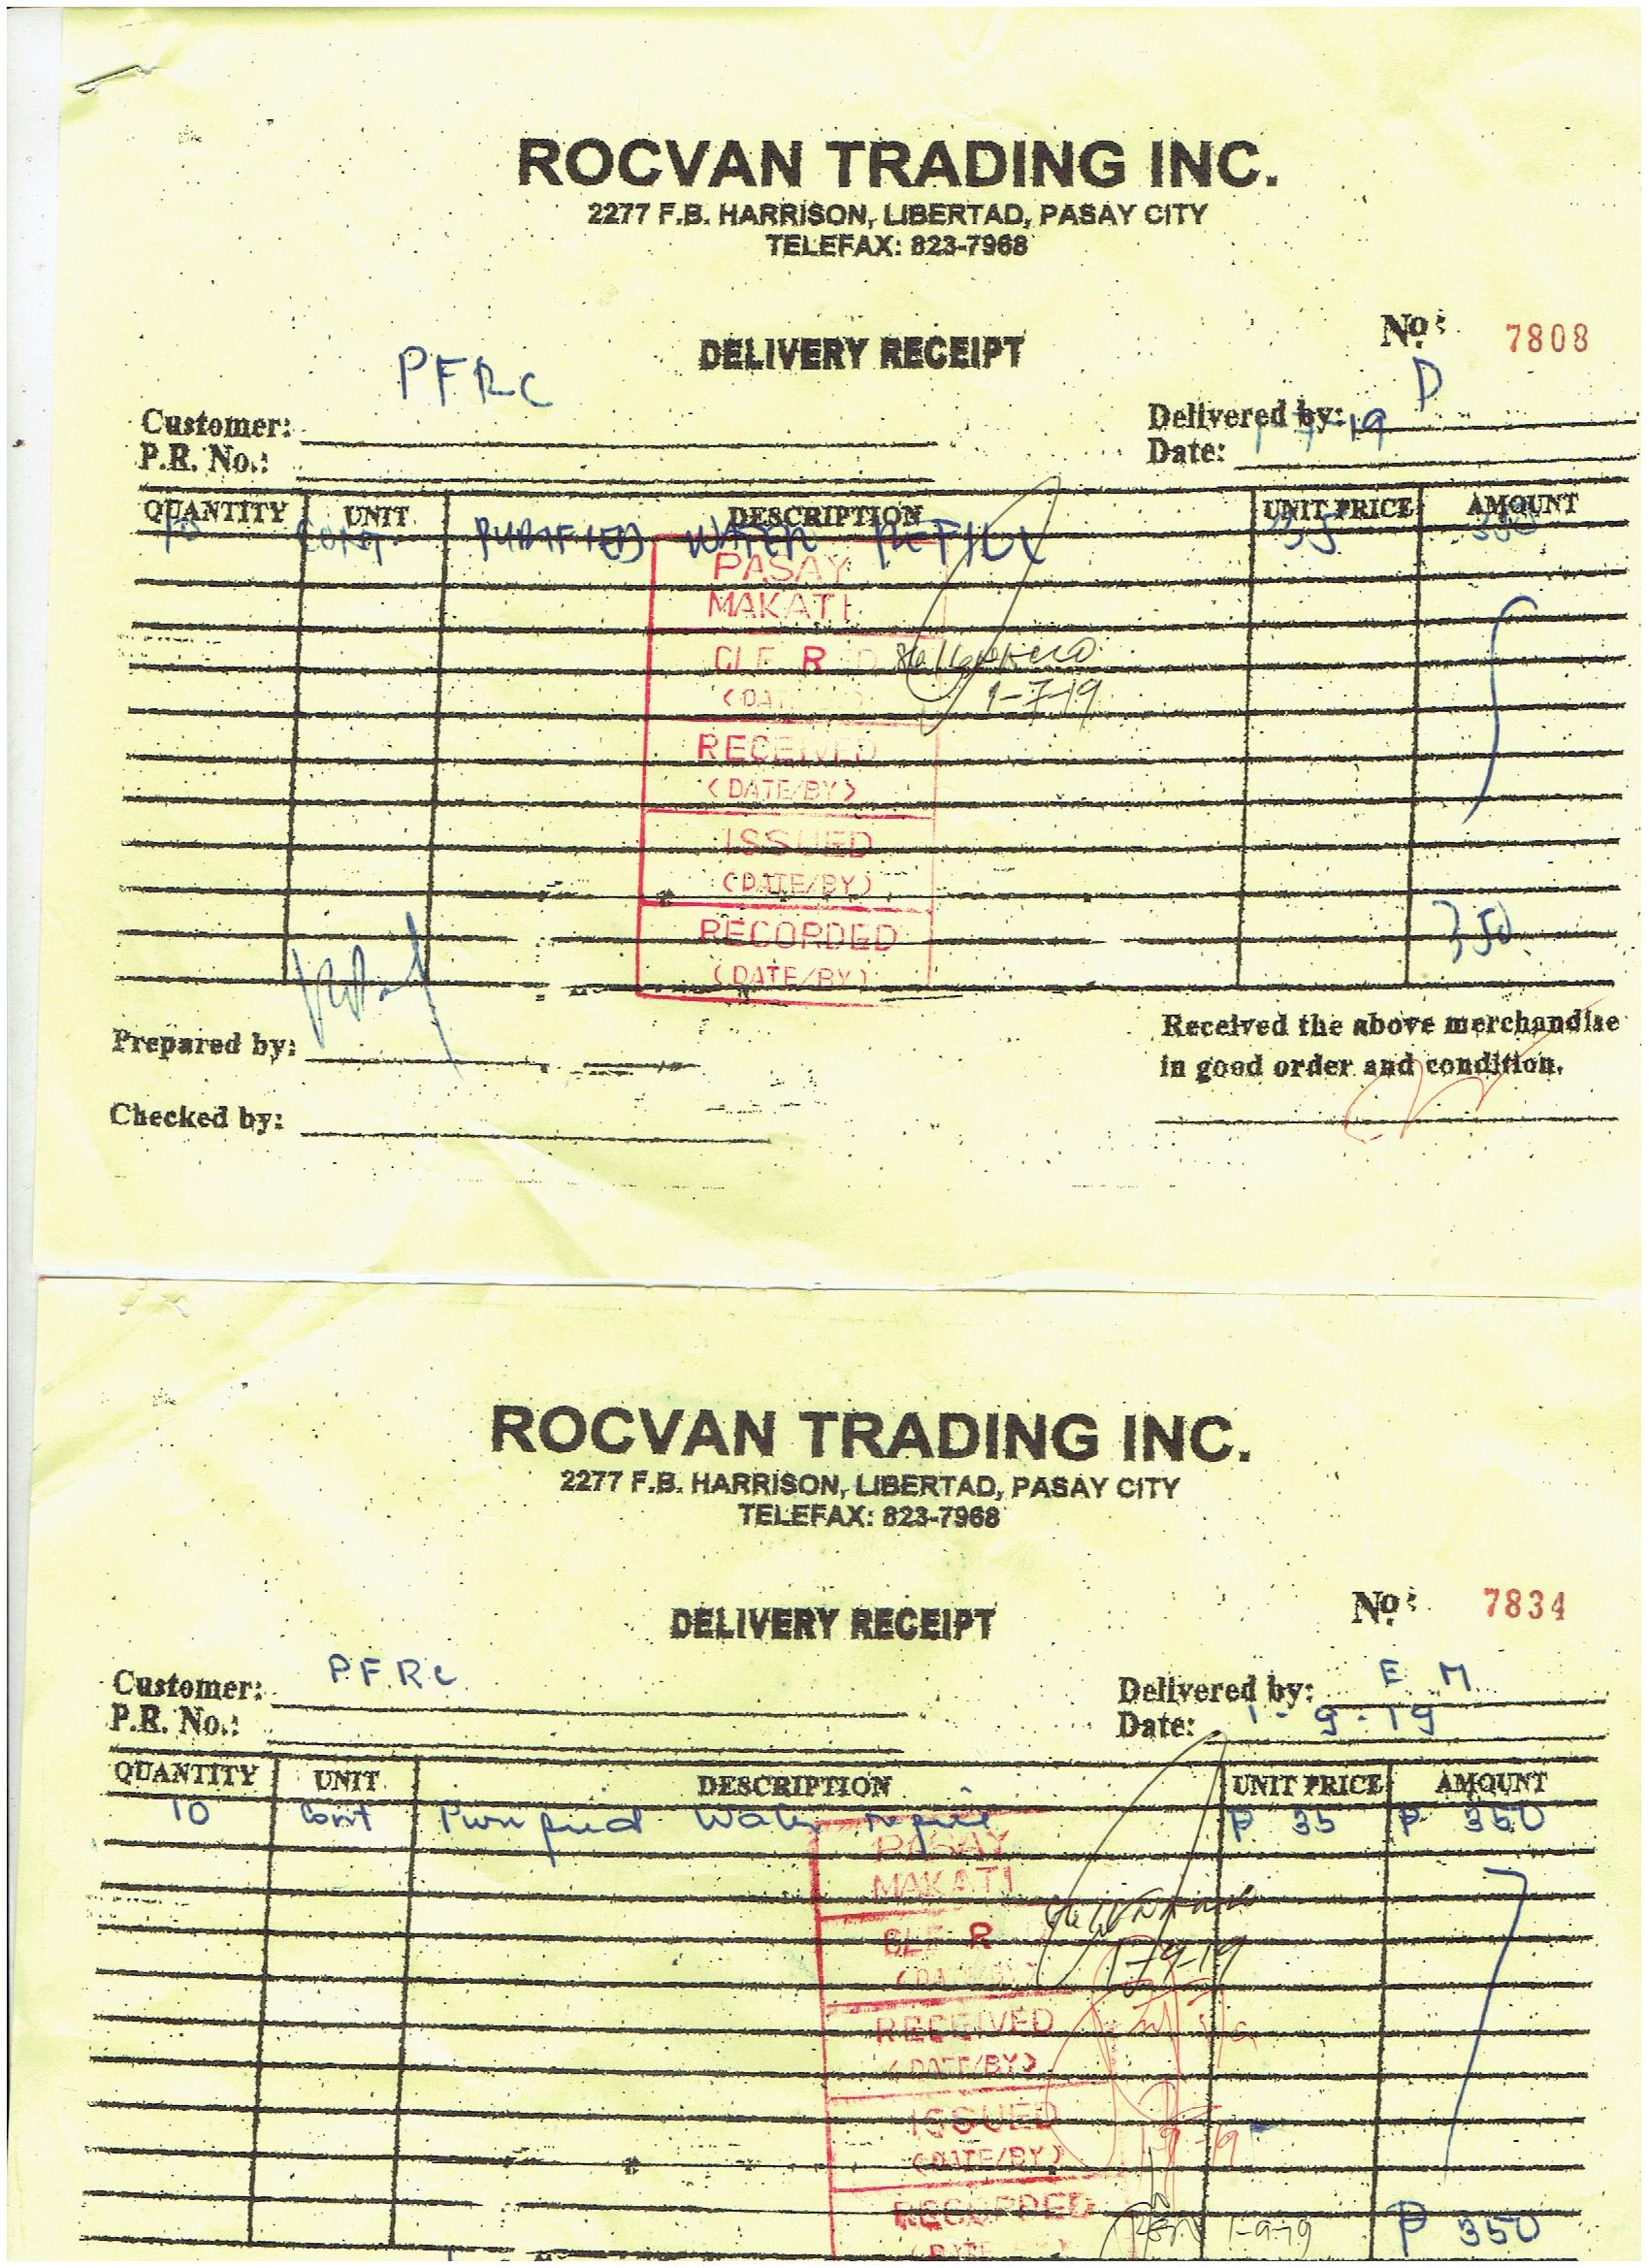 ROCVAN TRADING INC.
2277 F.B. HARRISON, LIBERTAD, PASAY CITY
TELEFAX: 823-7968
DELIVERY RECEIPT
No: 7808
Customer: PFRC
Delivered by: D
P.R. No.:
Date: 1-7-19
QUANTITY UNIT DESCRIPTION UNIT PRICE AMOUNT
10 CONT PURIFIED WATER REFILL 35 350
PASAY
MAKATI
1-7-19
RECEIVED
(DATE/BY)
ISSUED
(DATE/BY)
RECORDED
350
(DATE/BY)
Prepared by:
Received the above merchandise
in good order and condition.
Checked by:
ROCVAN TRADING INC.
2277 F.B. HARRISON, LIBERTAD, PASAY CITY
TELEFAX: 823-7968
DELIVERY RECEIPT
No: 7834
Customer: PFRC
Delivered by: E M
P.R. No.:
Date: 1-9-19
QUANTITY UNIT DESCRIPTION UNIT PRICE AMOUNT
10 Cont Purified Water refill ₱ 35 ₱ 350
PASAY
MAKATI
1-9-19
RECEIVED
(DATE/BY)
ISSUED
1-9-19
(DATE/BY)
RECORDED
1-9-19
₱ 350